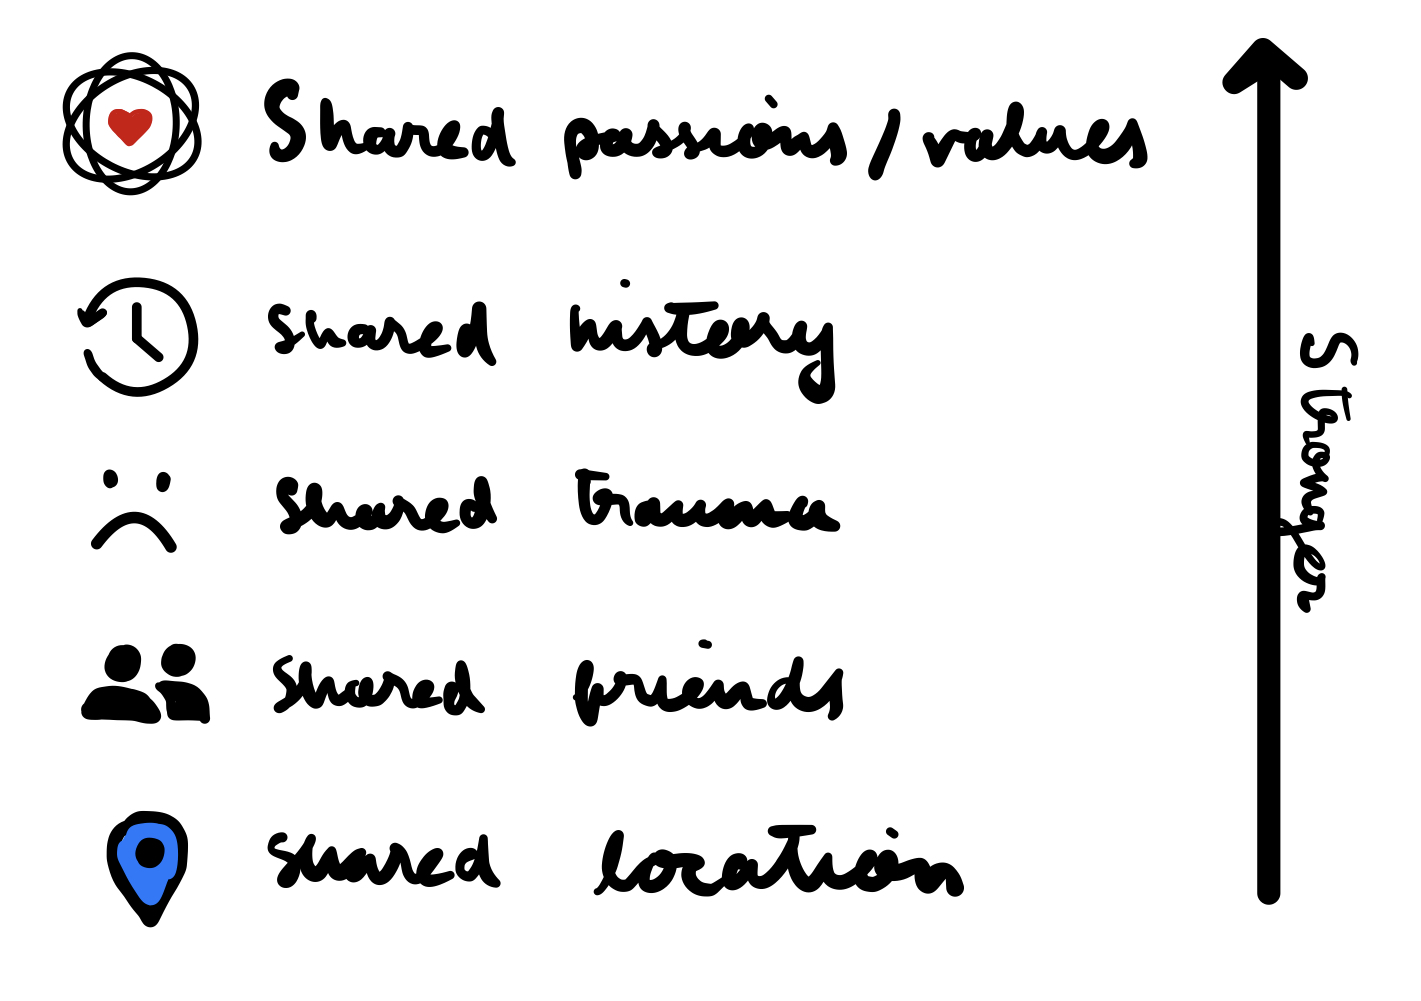 Shared passions / values
Shared history
Shared trauma
Shared friends
Shared location
Stronger